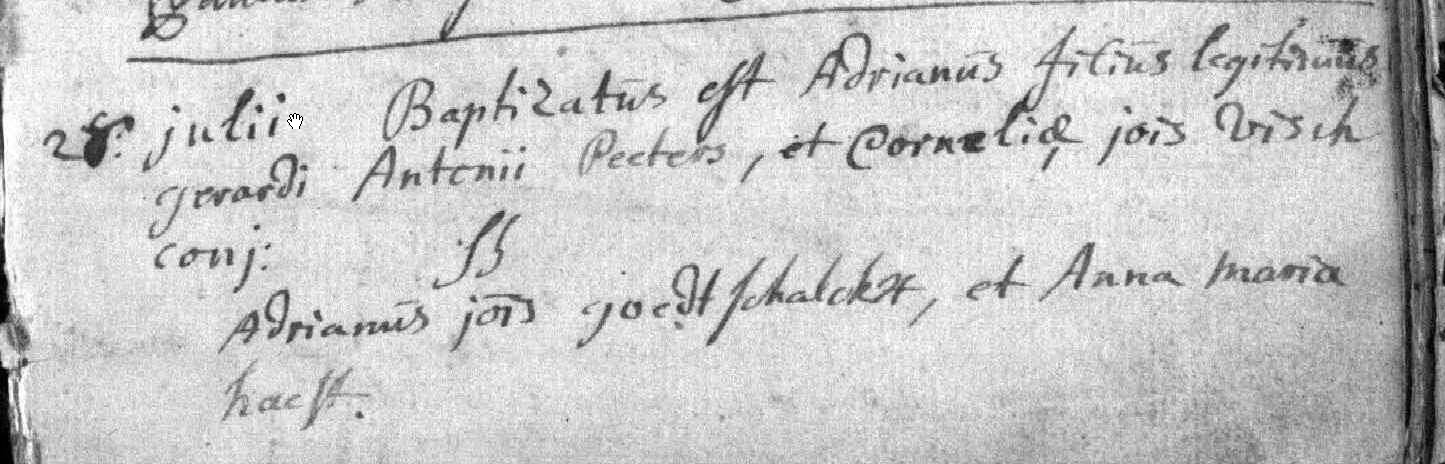 julii Baptizatūs est Adrianūs filiūs legitimūs
gerardi Antonii Peeters, et Corneliæ jois Visch
conj: ss
Adrianūs jois goedtschalckx, et Anna maria
haest.